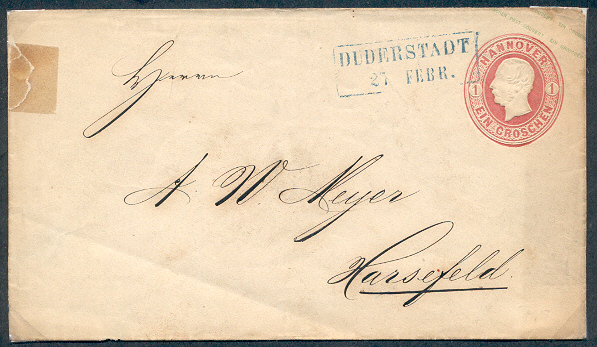 DUDERSTADT
27 FEBR.
HANNOVER
1 1
EIN GROSCHEN
Herrn
A. W. Meyer
Harsefeld.